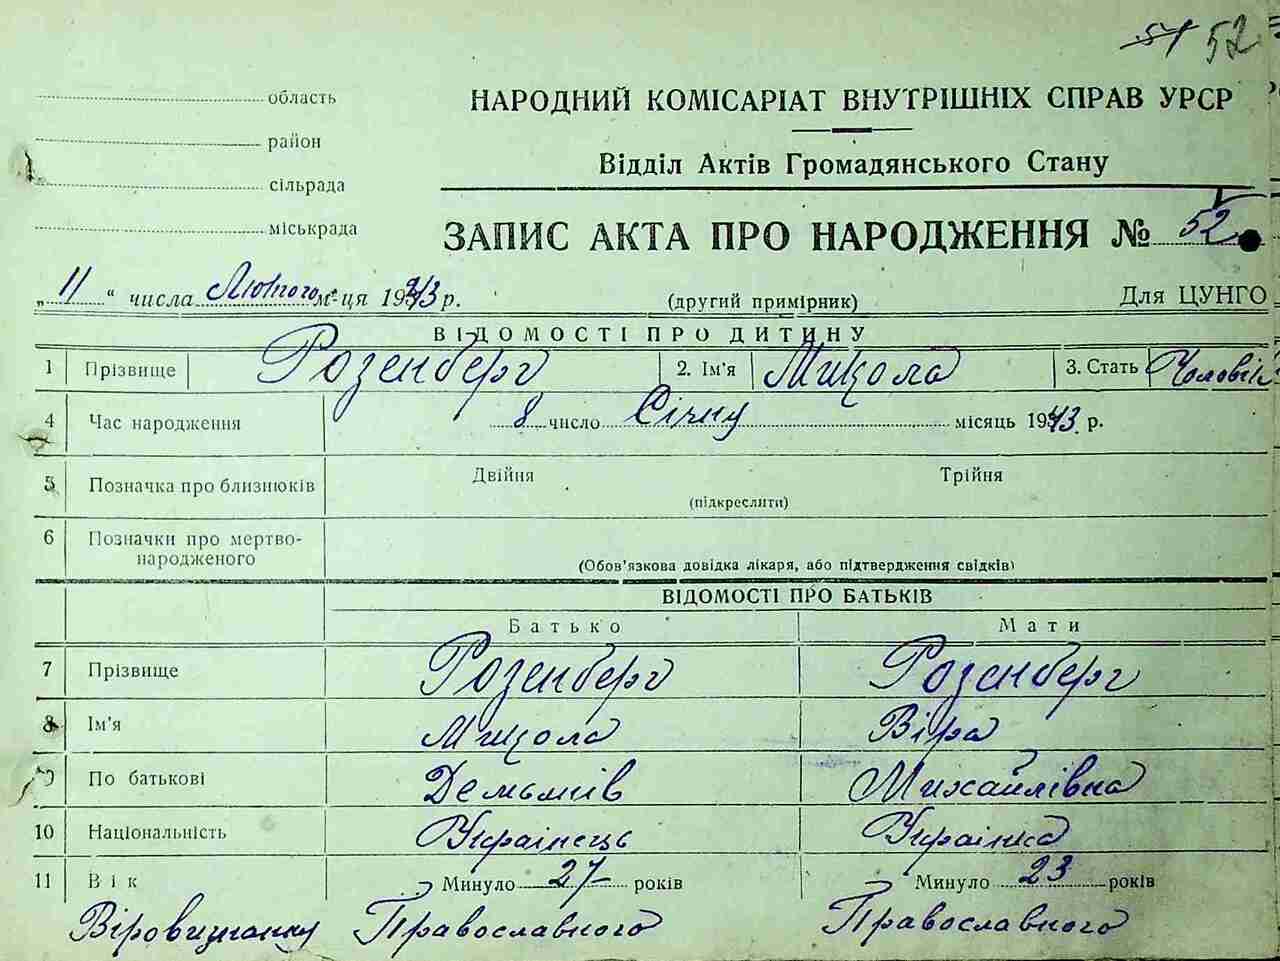 51 52
область
район
сільрада
міськрада
НАРОДНИЙ КОМІСАРІАТ ВНУТРІШНІХ СПРАВ УРСР
Відділ Актів Громадянського Стану
ЗАПИС АКТА ПРО НАРОДЖЕННЯ № 52
„ 11 “ числа Лютого м-ця 1943 р.
(другий примірник)
Для ЦУНГО
ВІДОМОСТІ ПРО ДИТИНУ
1 Прізвище Розенберг 2. Ім'я Микола 3. Стать Чоловік
4 Час народження 8 число Січну місяць 1943 р.
5 Позначка про близнюків Двійня Трійня
(підкреслити)
6 Позначки про мертво-
народженого
(Обов'язкова довідка лікаря, або підтвердження свідків)
ВІДОМОСТІ ПРО БАТЬКІВ
Батько Мати
7 Прізвище Розенберг Розенберг
8 Ім'я Микола Віра
9 По батькові Михайлівна
10 Національність Українець Українка
11 Вік Минуло 27 років Минуло 23 років
Православного Православного